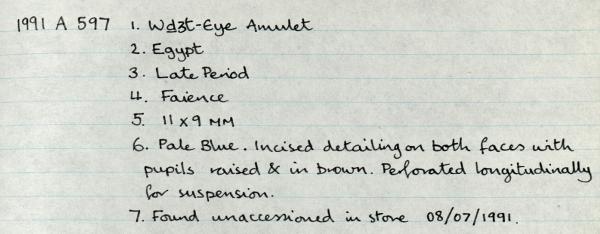 1991 A 597 1. Wd3t-Eye Amulet
2. Egypt
3. Late Period
4. Faience
5. 11 x 9 MM
6. Pale Blue. Incised detailing on both faces with
pupils raised & in brown. Perforated longitudinally
for suspension.
7. Found unaccessioned in store 08/07/1991.